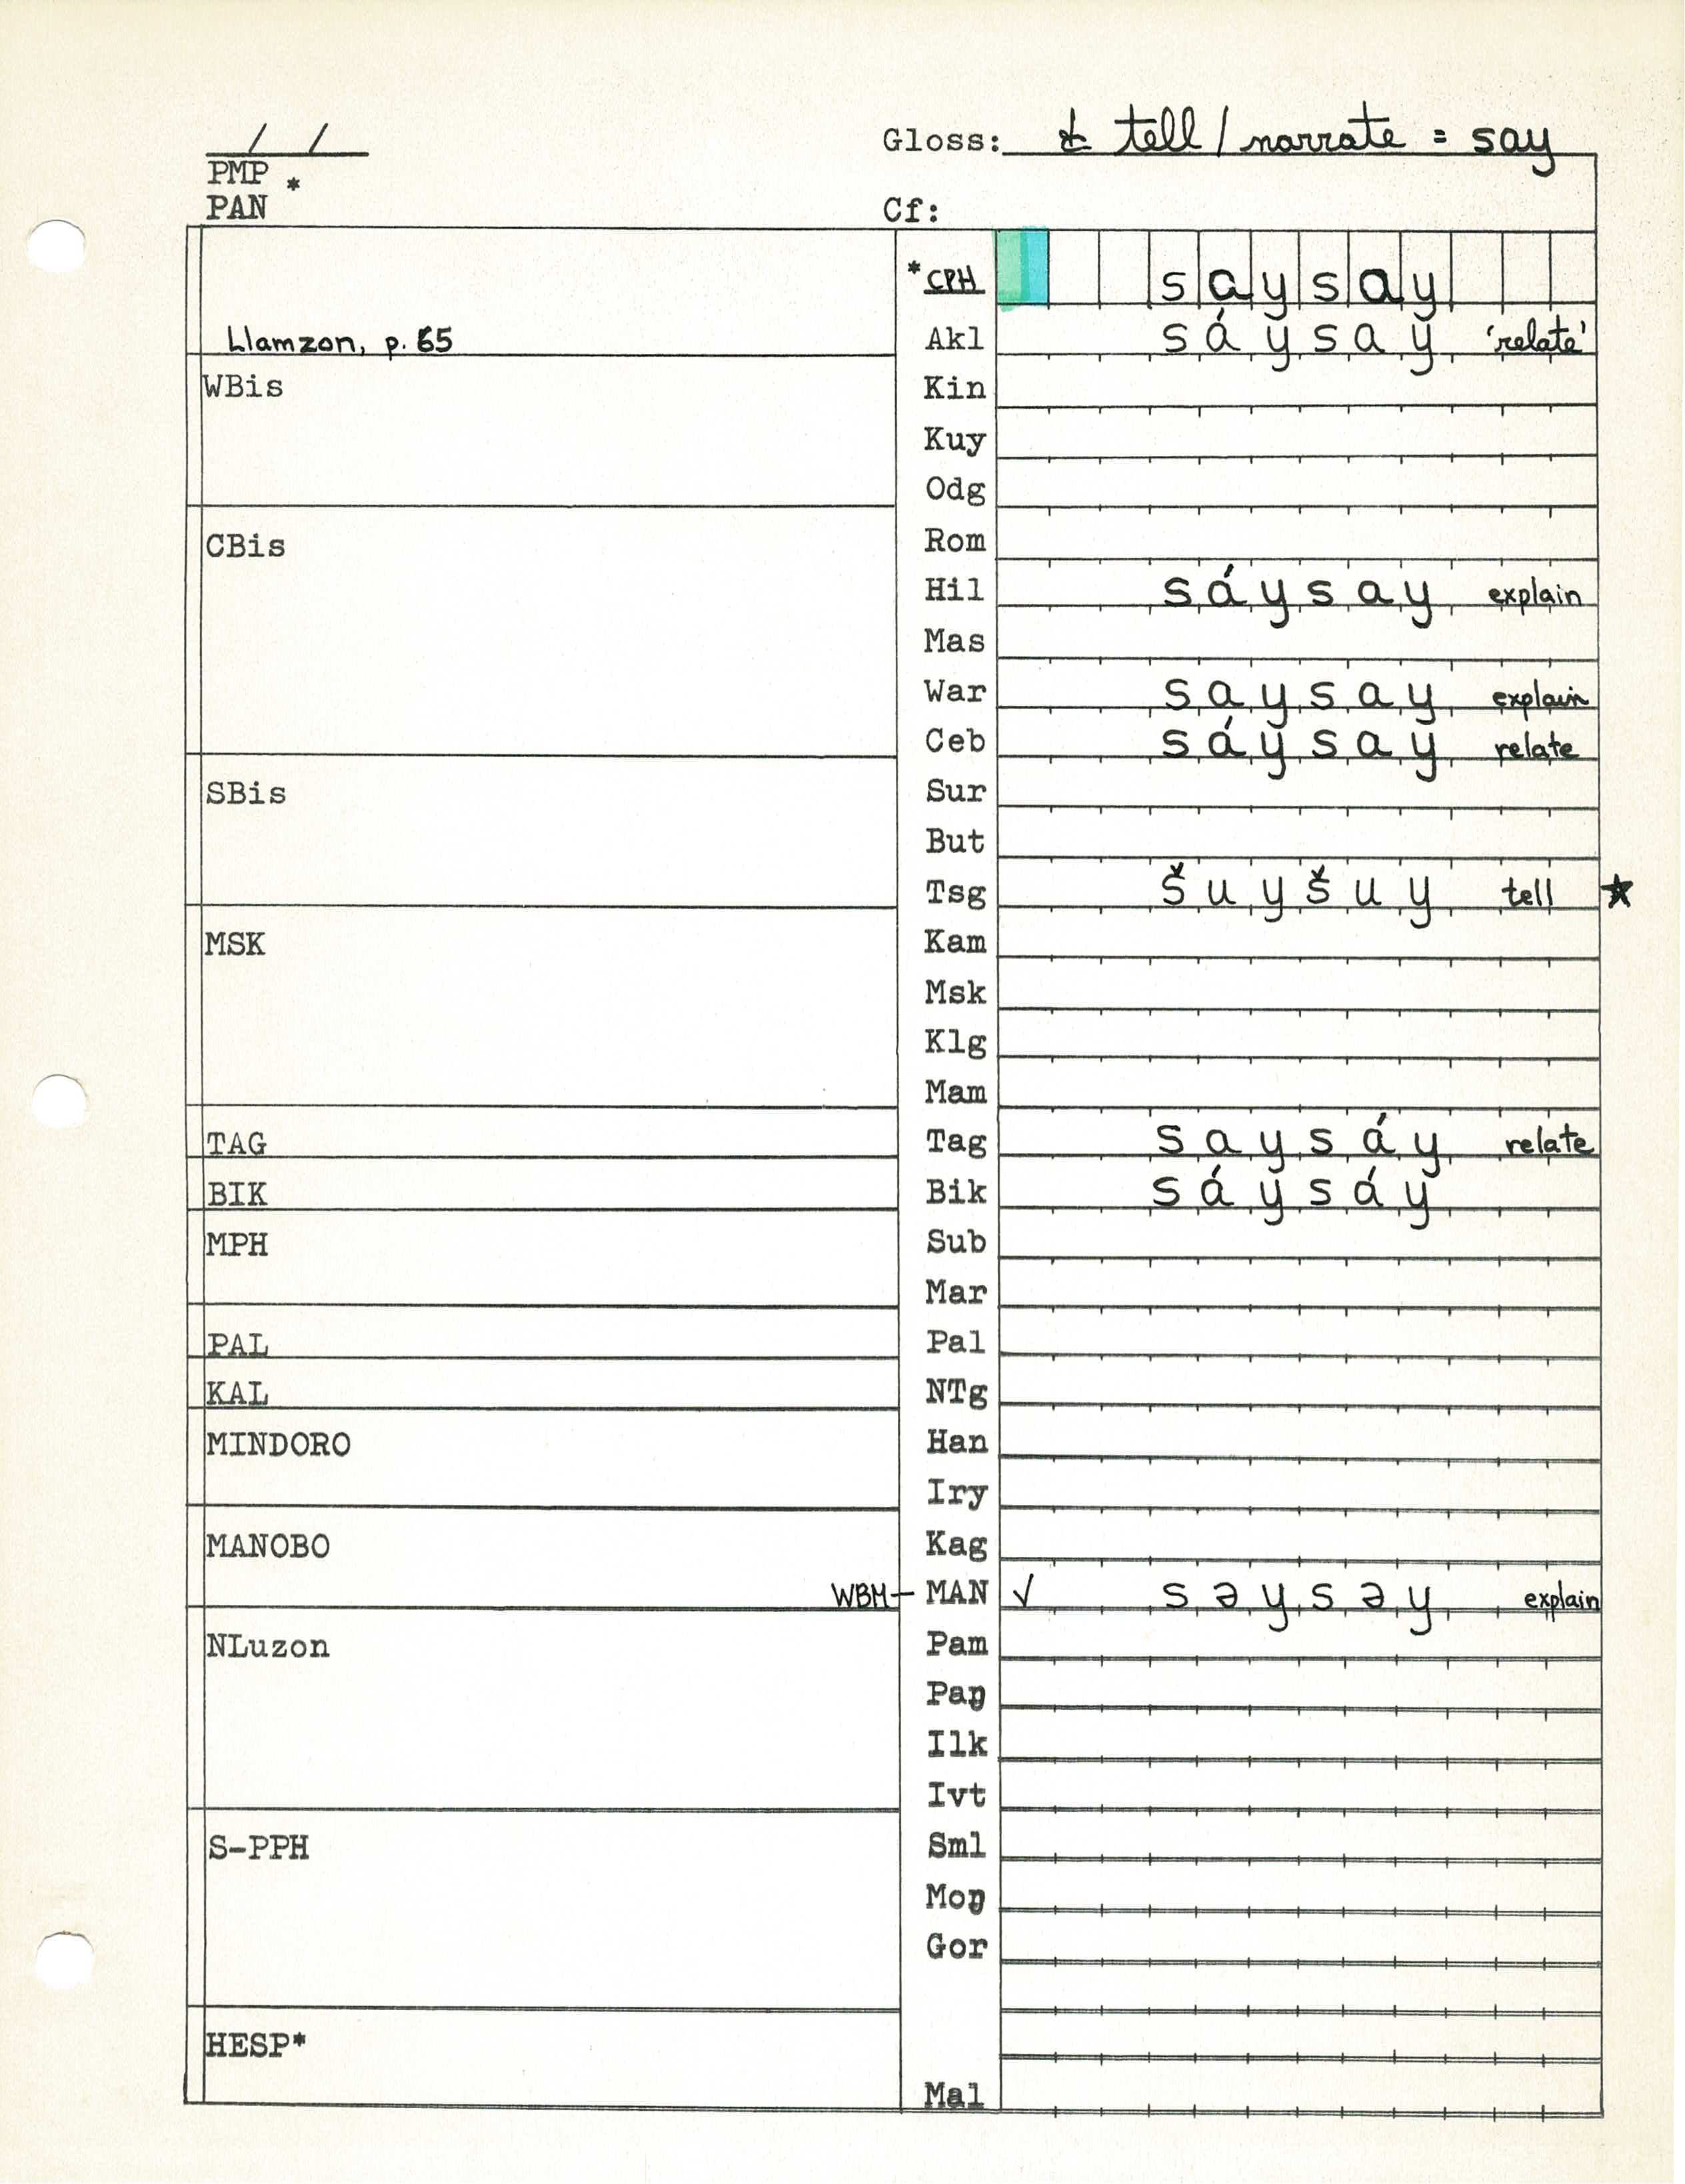 / /
Gloss: tell / narrate = say
PMP *
PAN
Cf:
*CPH saysay
Llamzon, p. 65
Akl sáysay 'relate'
WBis
Kin
Kuy
Odg
CBis
Rom
Hil sáysay explain
Mas
War saysay explain
Ceb sáysay relate
SBis
Sur
But
Tsg šuyšuy tell ★
MSK
Kam
Msk
Klg
Mam
TAG
Tag saysáy relate
BIK
Bik sáysáy
MPH
Sub
Mar
PAL
Pal
KAL
NTg
MINDORO
Han
Iry
MANOBO
Kag
WBM — MAN √ səysəy explain
NLuzon
Pam
Paŋ
Ilk
Ivt
S-PPH
Sml
Moŋ
Gor
HESP*
Mal